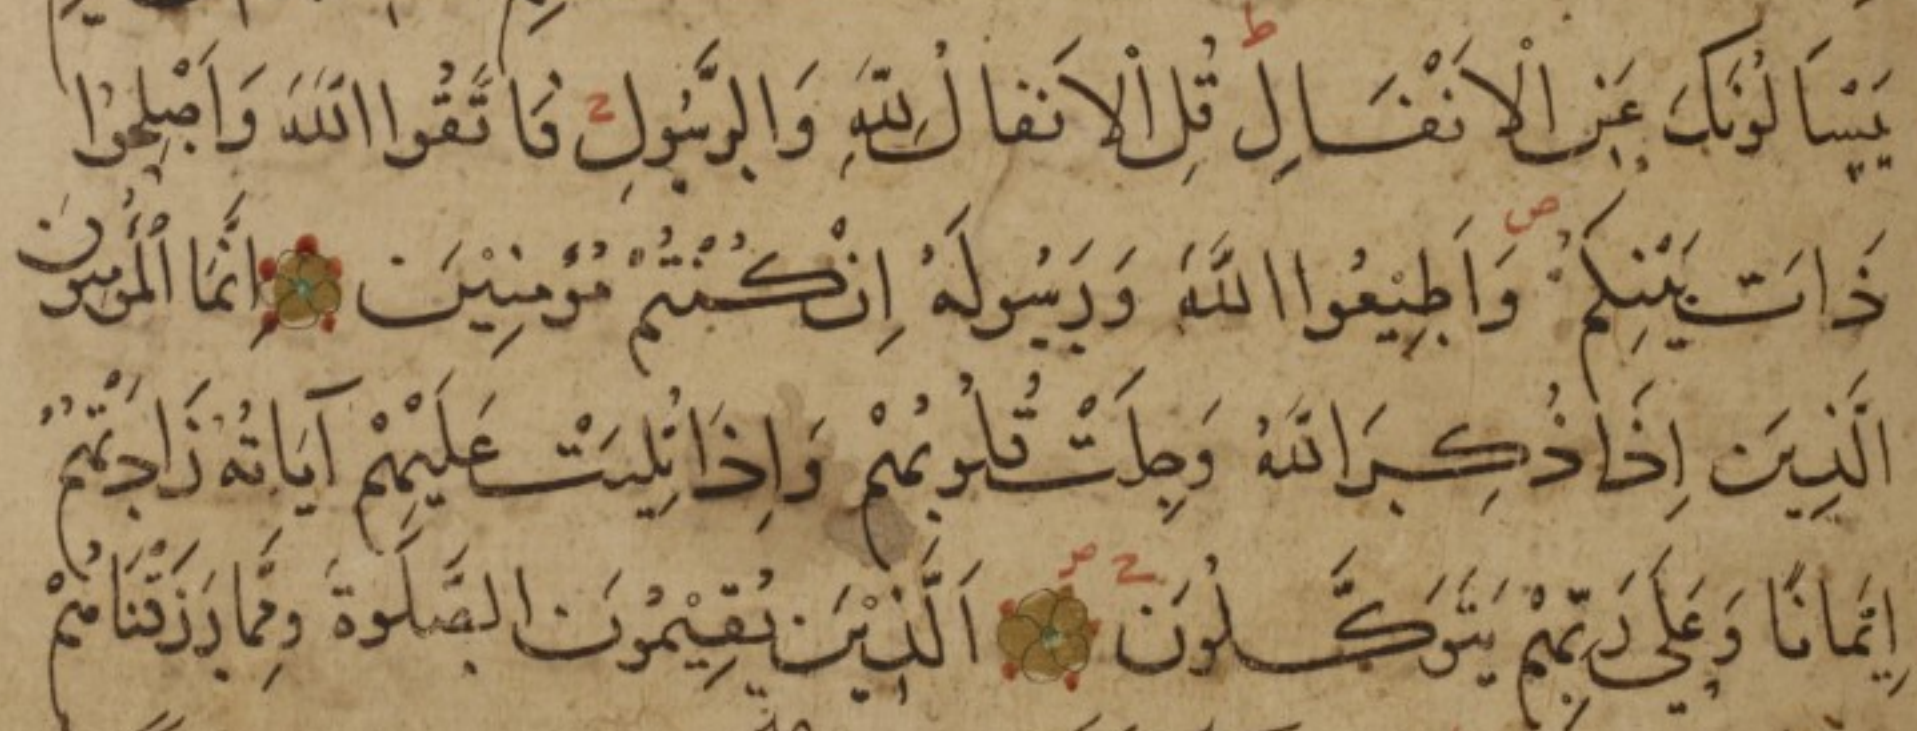 يَسْاَلُونَكَ عَنِ الْاَنْفَالِ ط قُلِ الْاَنفالُ لِلّٰهِ وَالرَّسُولِ ح فَاتَّقُوا اللّٰهَ وَاَصْلِحُوا
ذَاتَ بَيْنِكُمْ ص وَاَطِيْعُوا اللّٰهَ وَرَسُولَهُ اِنْ كُنْتُمْ مُؤْمِنِيْنَ اِنَّمَا الْمُؤْمِنُونَ
الَّذِينَ اِذَا ذُكِرَ اللّٰهُ وَجِلَتْ قُلُوبُهُمْ وَاِذَا تُلِيَتْ عَلَيْهِمْ آيَاتُهُ زَادَتْهُمْ
اِيْمَانًا وَعَلَي رَبِّهِمْ يَتَوَكَّلُونَ ح ص اَلَّذِيْنَ يُقِيْمُونَ الصَّلَوةَ ومِمَّا رَزَقْنَاهُمْ